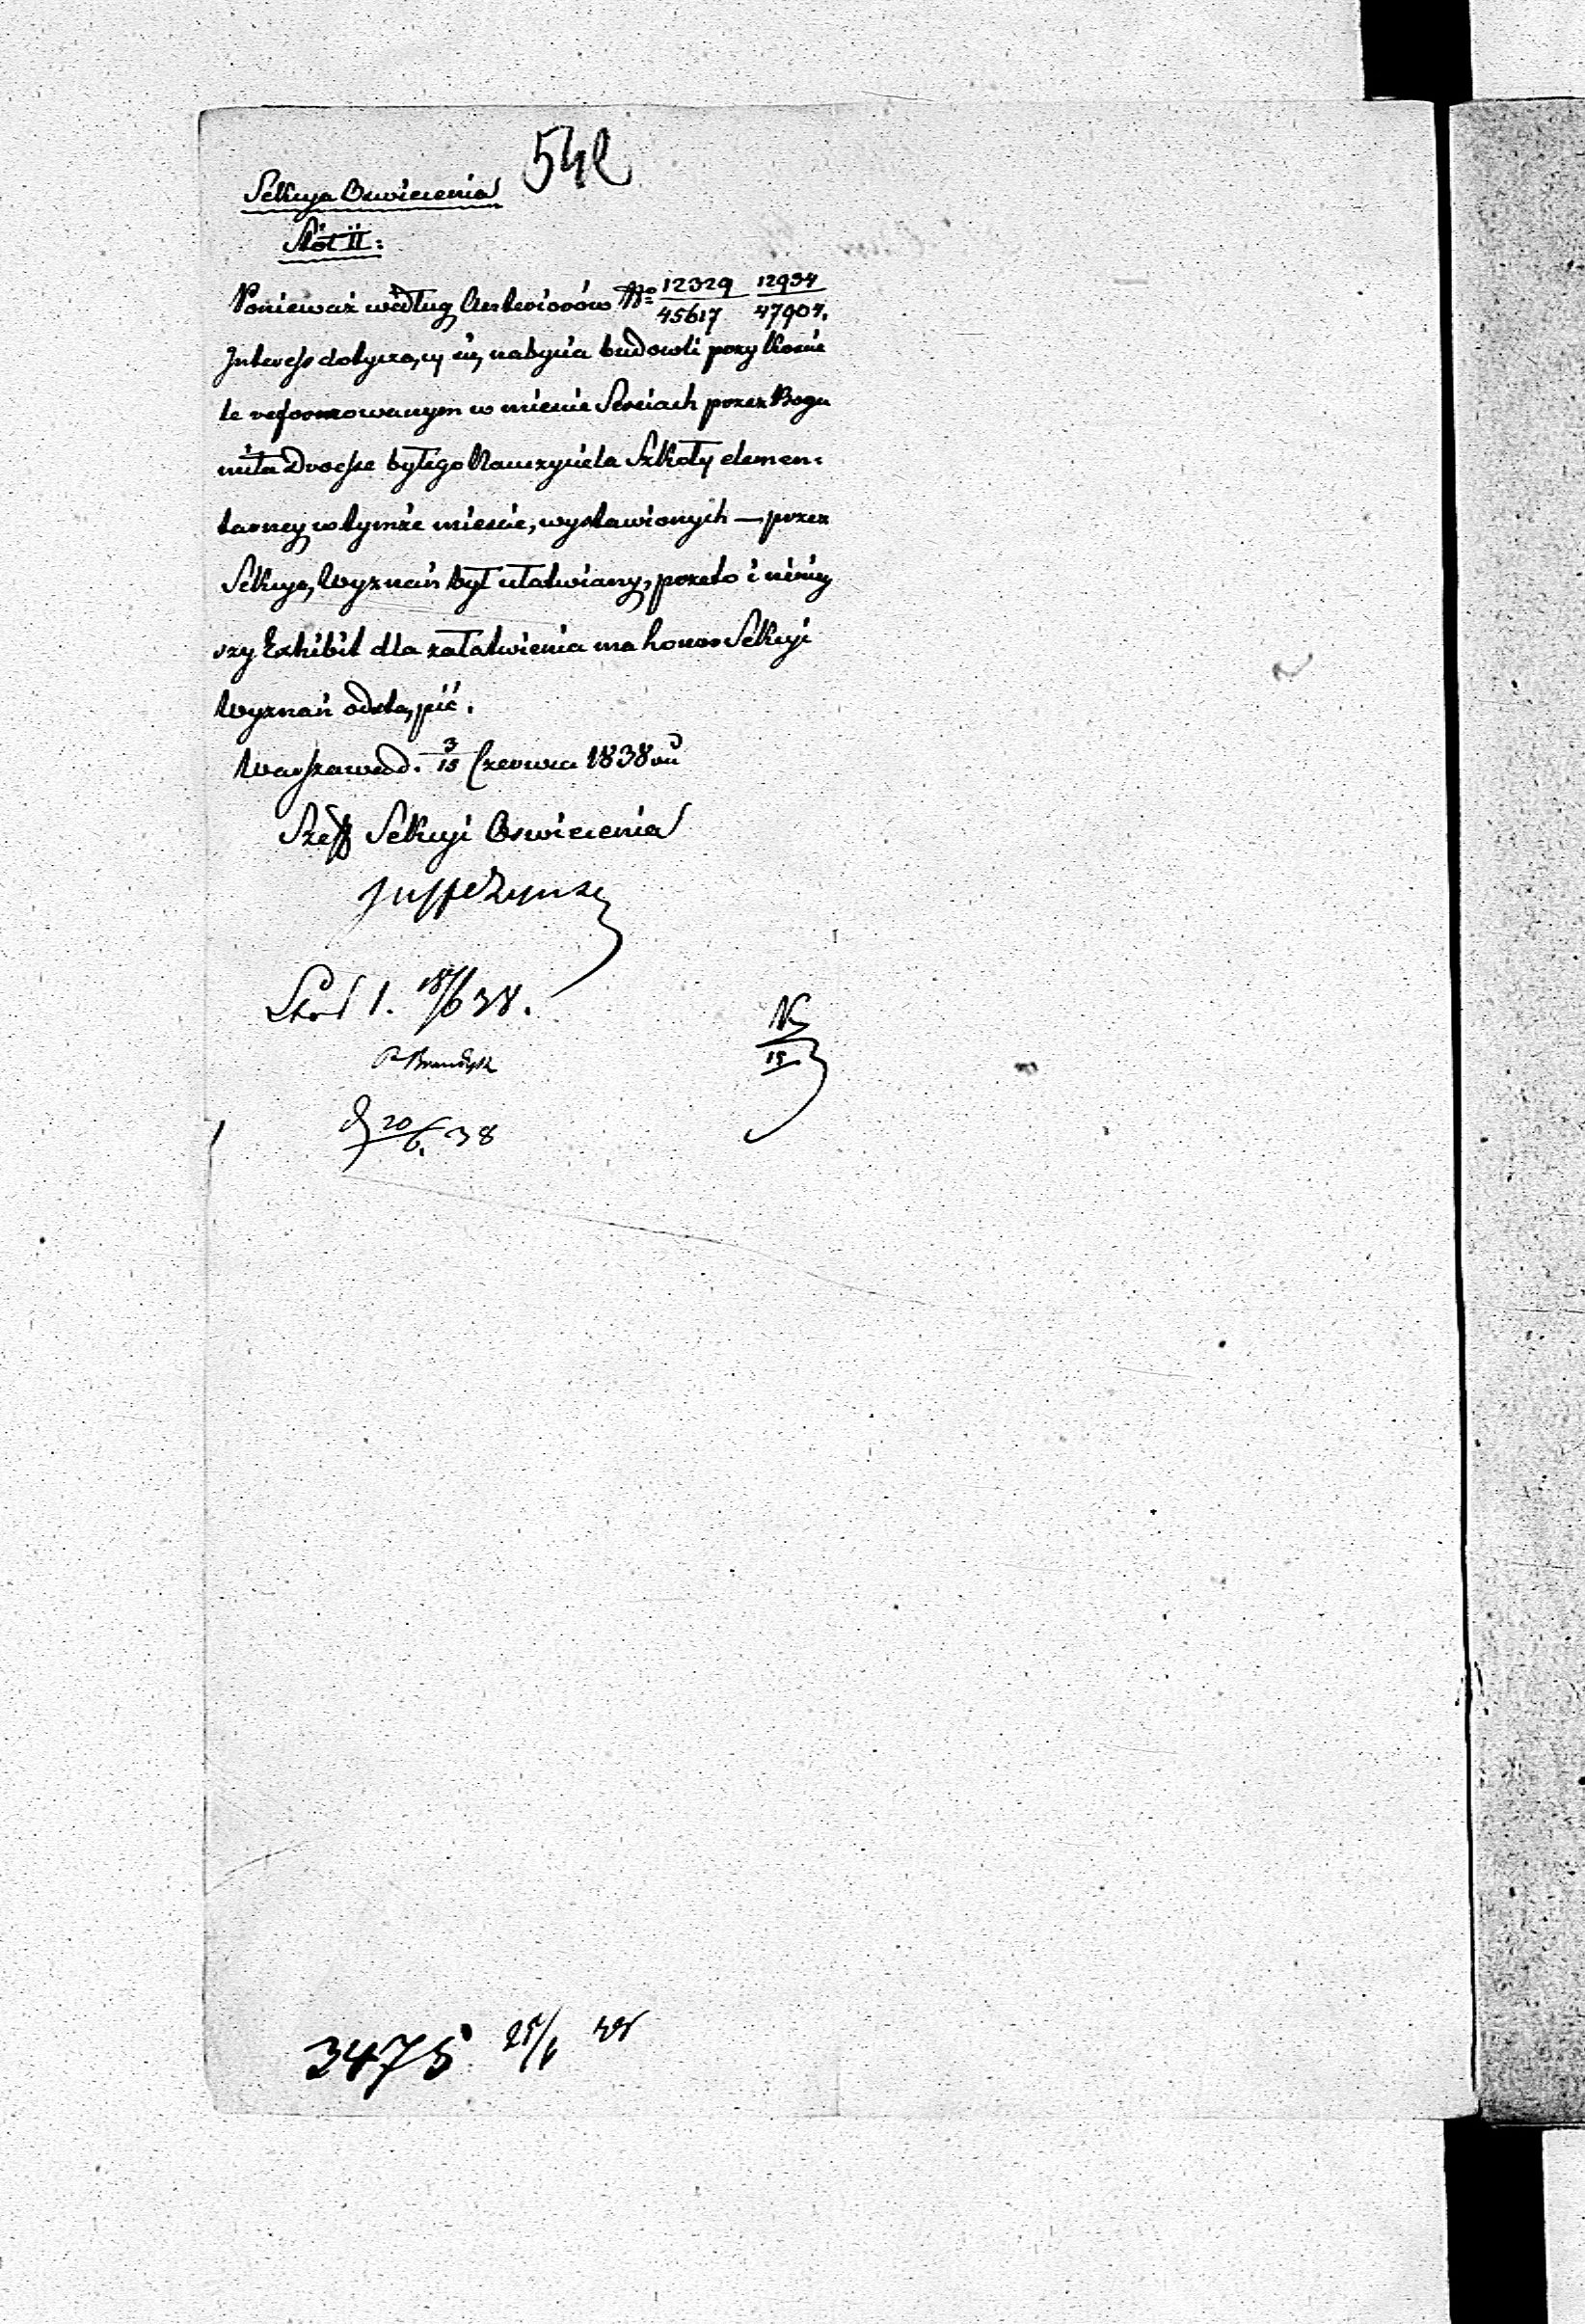 542
Sekcya Oswiecenia
Stół II:
Ponieważ według Anteriorów No 12329/45617 12934/47904.
Interess dotyczący się nabycia budowli przy Koscie
le reformowanym w miescie Sereiach przez Bogu
miła Drosse byłego Nauczyciela Szkoły elemen:
tarney w tymże miescie, wystawionych — przez
Sekcyę Wyznań był ułatwiany, przeto i niniey
szy Exhibit dla załatwienia ma honor Sekcyi
Wyznań odstąpić.
Warszawa d. 3/15 Czerwca 1838 ru
Szeff Sekcyi Oswiecenia
Stół 1. 18/6 38.
20/6. 38
15
3475 25/6